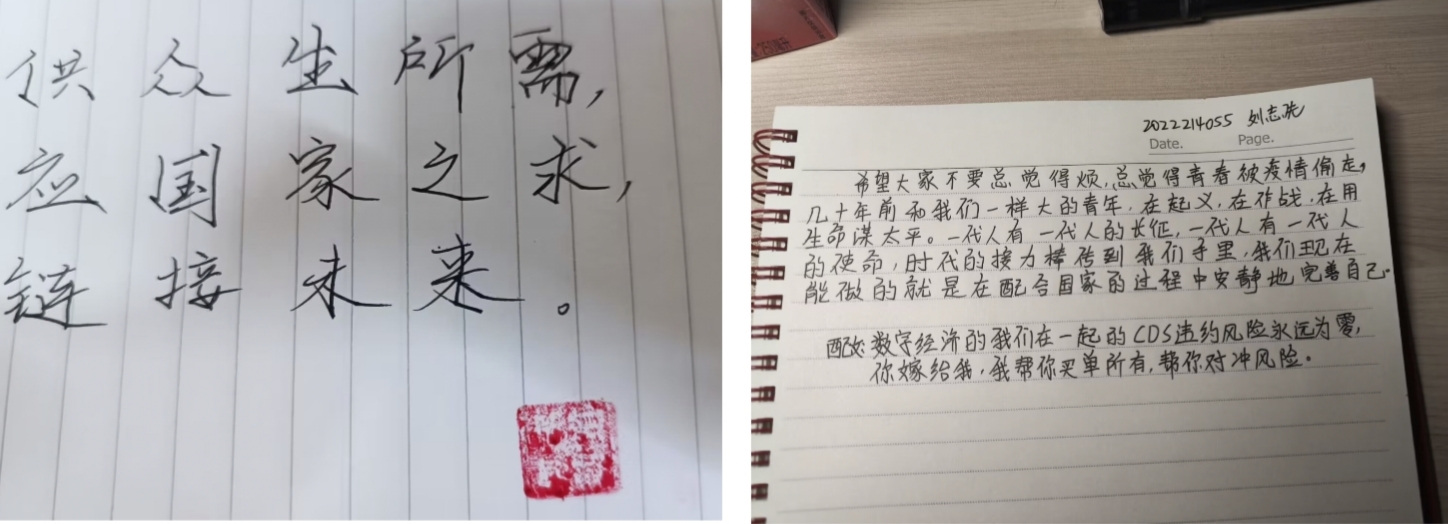 供众生所需,
应国家之求,
链接未来。
2022214055 刘志洗
Date. Page.
希望大家不要总觉得烦,总觉得青春被疫情偷走,
几十年前和我们一样大的青年,在起义,在作战,在用
生命谋太平。一代人有一代人的长征,一代人有一代人
的使命,时代的接力棒传到我们手里,我们现在
能做的就是在配合国家的过程中安静地完善自己。
配文:数字经济的我们在一起的CDS违约风险永远为零,
你嫁给我,我帮你买单所有,帮你对冲风险。